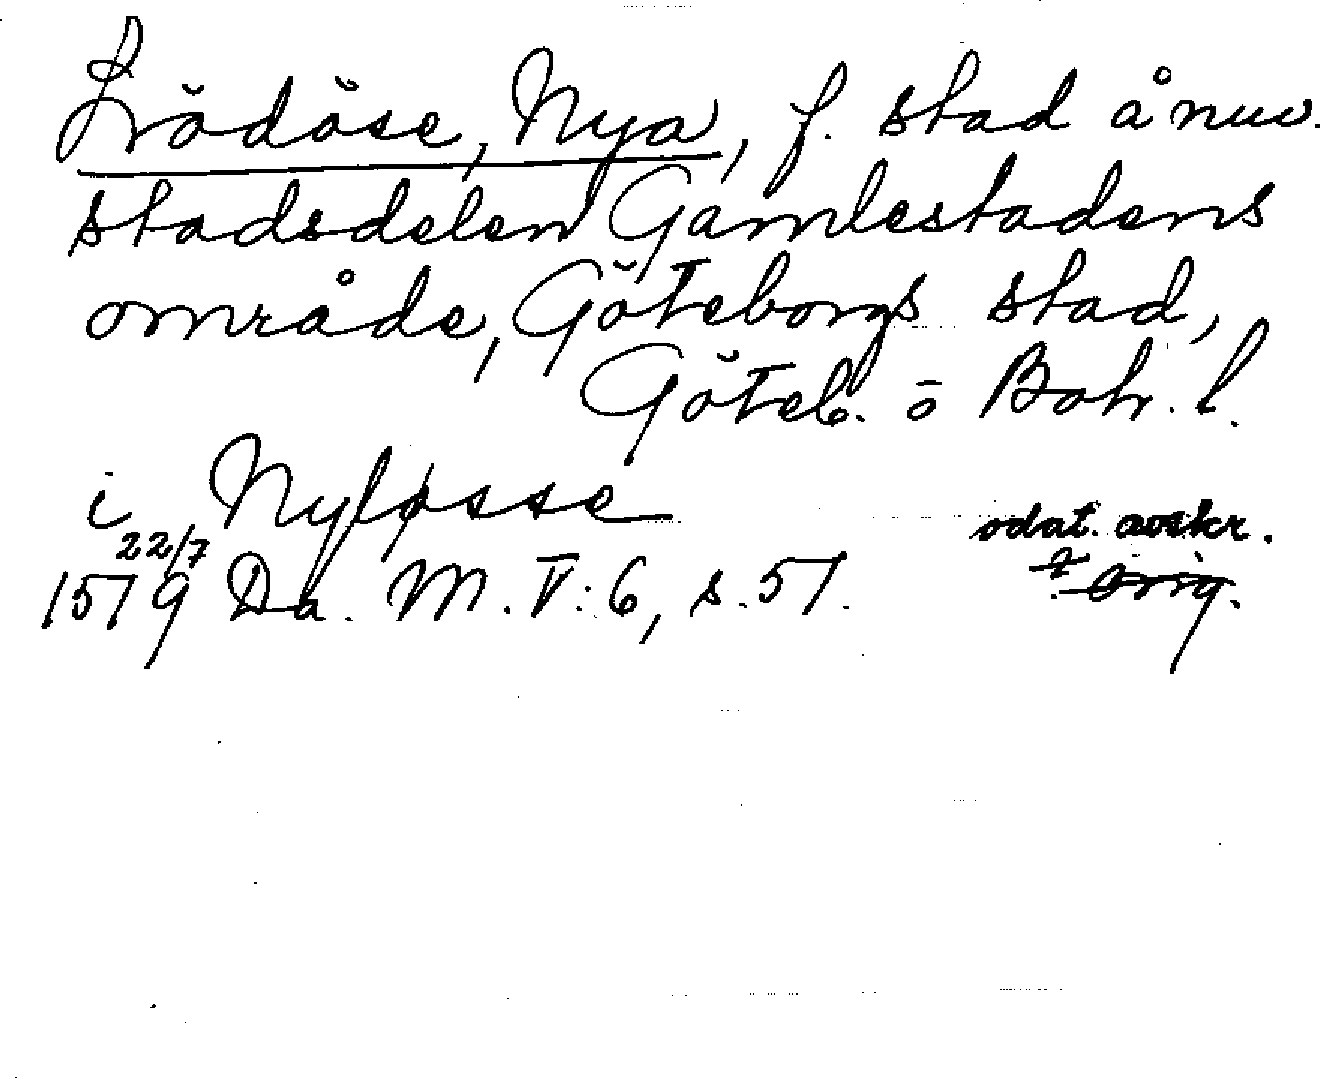 Lödöse, Nya, f. stad å nuv.
stadsdelen Gamlestadens
område, Göteborgs stad,
Göteb. o Boh. l.
i Nyløsse odat. avskr.
22/7 orig.
1579 Da. M. V:6, s. 57.